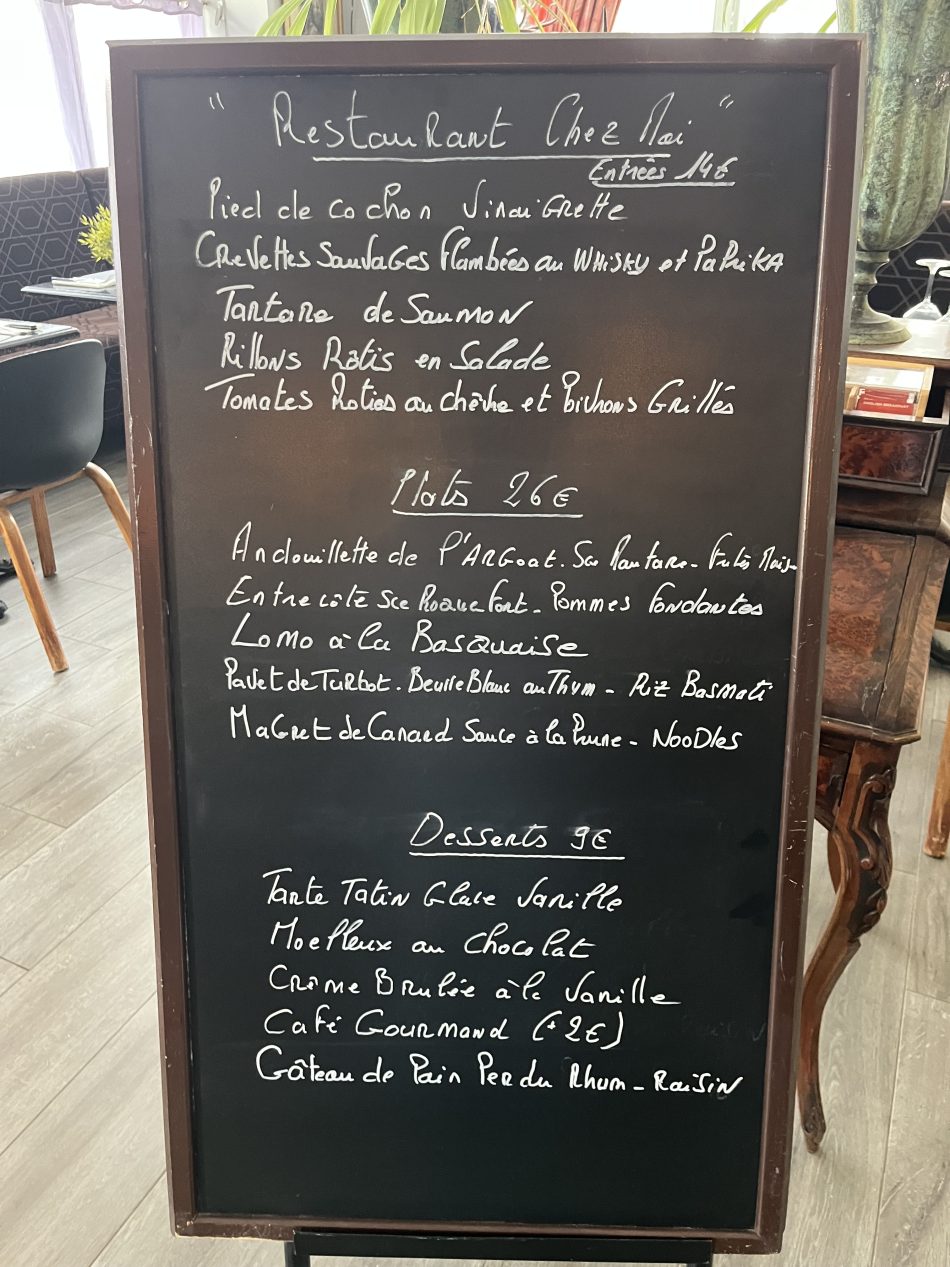 " Restaurant Chez Moi "
Entrées 14€
Pied de cochon Vinaigrette
Crevettes Sauvages Flambées au Whisky et Paprika
Tartare de Saumon
Rillons Rôtis en Salade
Tomates Roties au chèvre et Poivrons Grillés
Plats 26€
Andouillette de l'Argoat. Sce Moutarde - Frites Maison
Entrecôte Sce Roquefort - Pommes Fondantes
Lomo à la Basquaise
Pavet de Turbot. Beurre Blanc au Thym - Riz Basmati
Magret de Canard Sauce à la Prune - Noodles
Desserts 9€
Tarte Tatin Glace Vanille
Moelleux au Chocolat
Crème Brulée à la Vanille
Café Gourmand (+ 2€)
Gâteau de Pain Perdu Rhum - Raisin